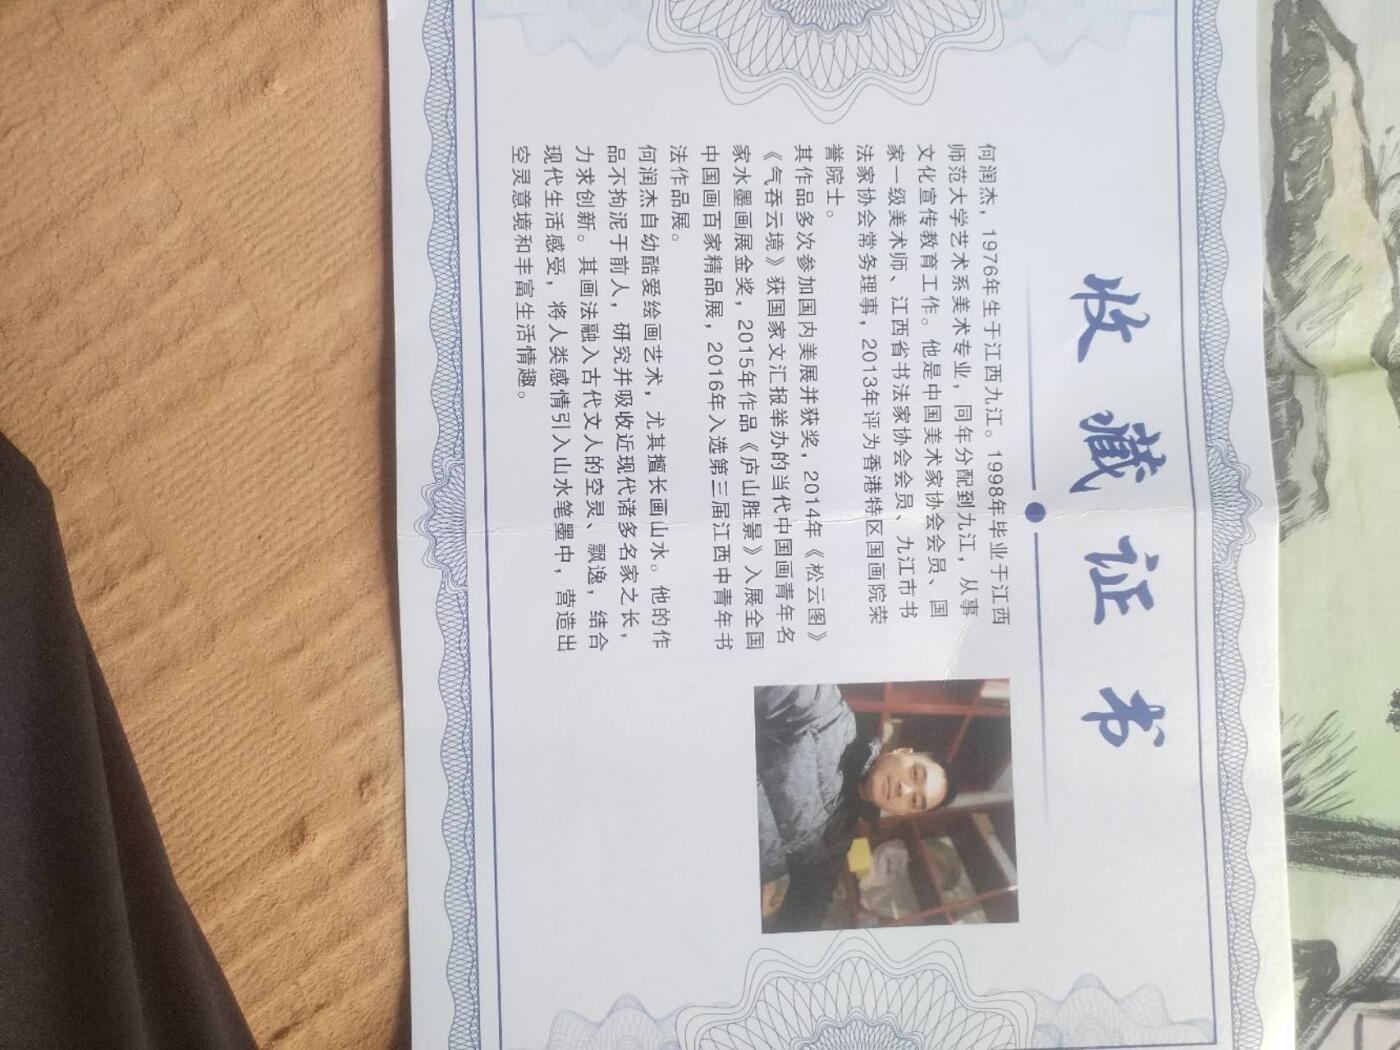 收藏证书
何润杰，1976年生于江西九江。1998年毕业于江西
师范大学艺术系美术专业，同年分配到九江，从事
文化宣传教育工作。他是中国美术家协会会员、国
家一级美术师、江西省书法家协会会员、九江市书
法家协会常务理事，2013年评为香港特区国画院荣
誉院士。
其作品多次参加国内美展并获奖，2014年《松云图》
《气吞云境》获国家文汇报举办的当代中国画青年名
家水墨画展金奖，2015年作品《庐山胜景》入展全国
中国画百家精品展，2016年入选第三届江西中青年书
法作品展。
何润杰自幼酷爱绘画艺术，尤其擅长画山水。他的作
品不拘泥于前人，研究并吸收近现代诸多名家之长，
力求创新。其画法融入古代文人的空灵、飘逸，结合
现代生活感受，将人类感情引入山水笔墨中，营造出
空灵意境和丰富生活情趣。